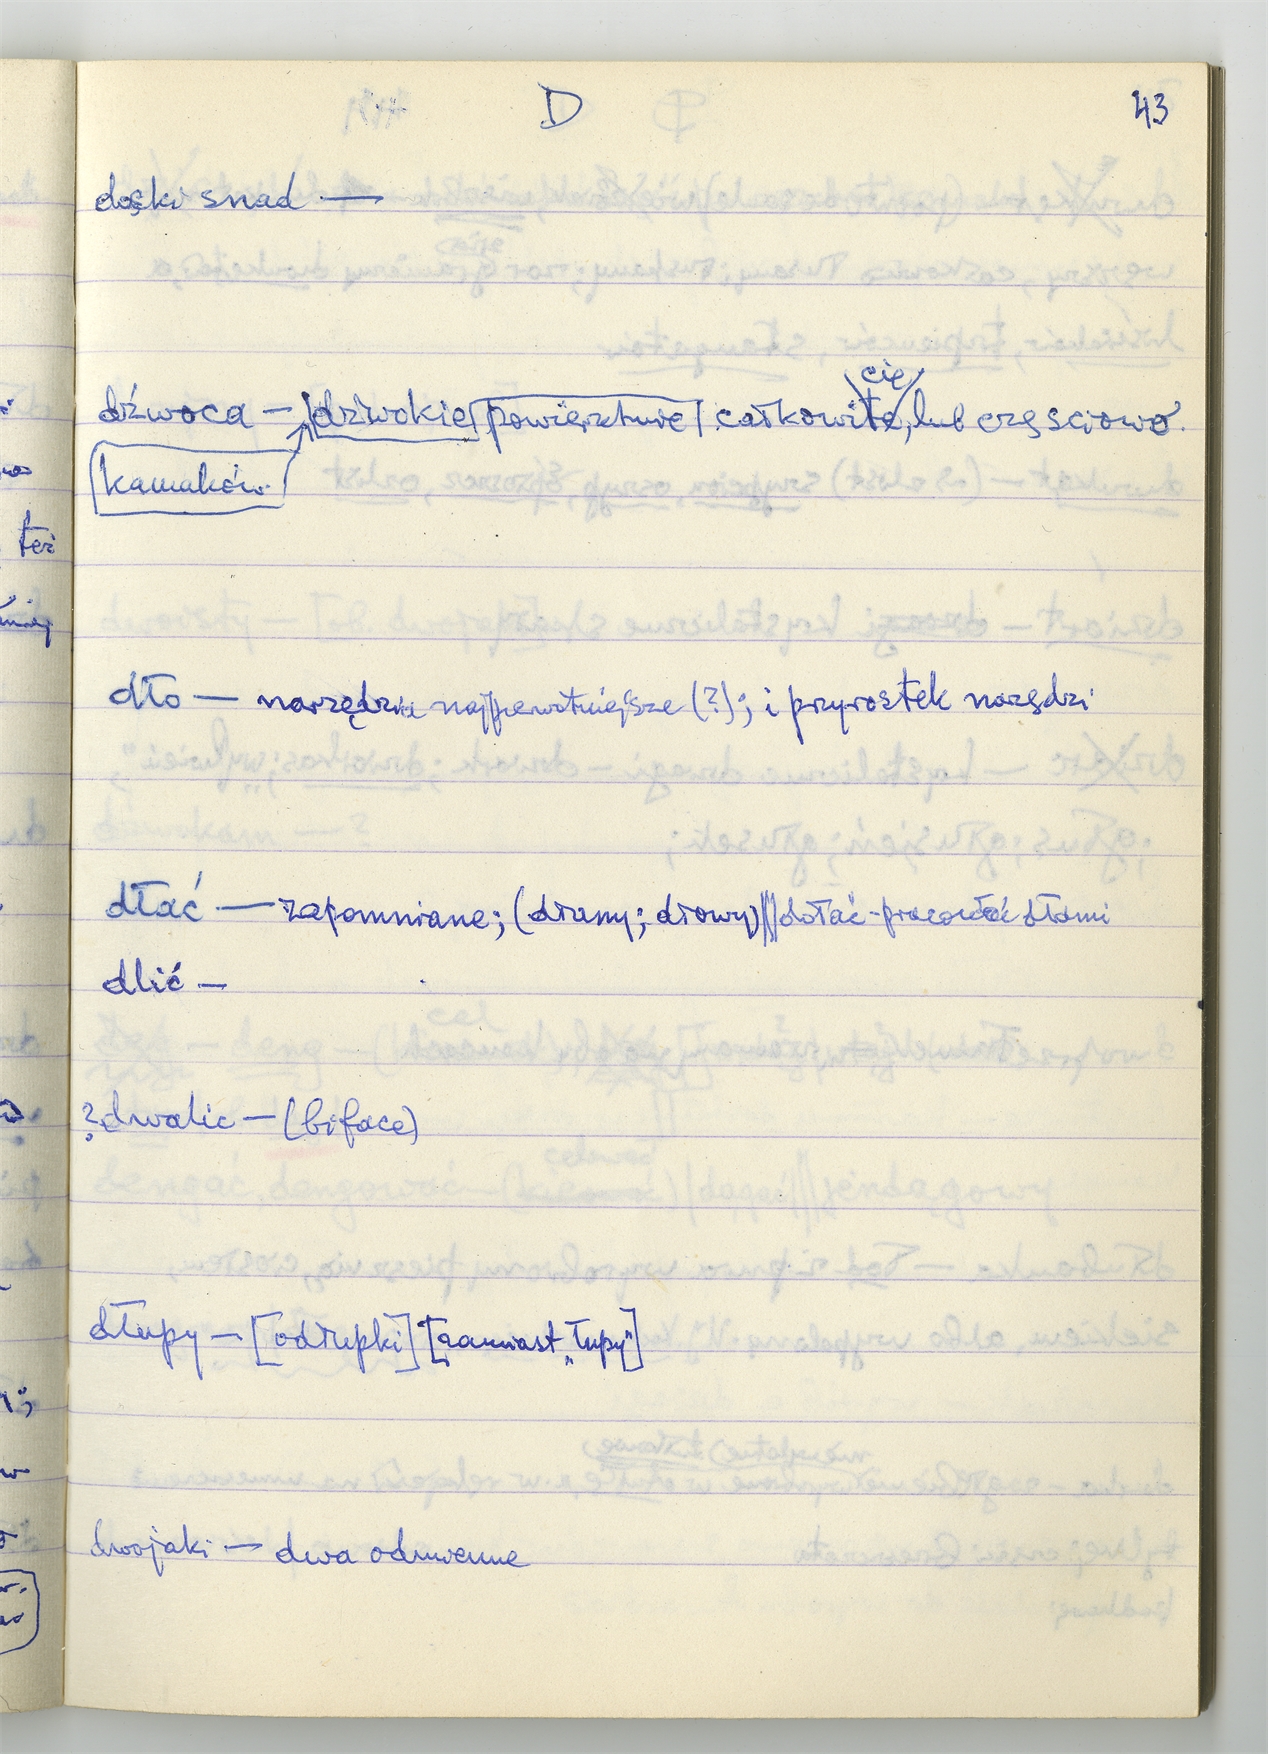 D 43
doski snad —
cię
dźwoca — dźwokie powierzchnie całkowite, lub częściowo.
kamaków
dło — narzędzie najpierwotniejsze (?); i przyrostek narzędzi
dłać — zapomniane; (dłamy; dłowy) dołać - pracować dłami
dlić —
? dwalic — (biface)
dłupy — [odłupki] [zamiast „łupy"]
dwojaki — dwa odmienne
też